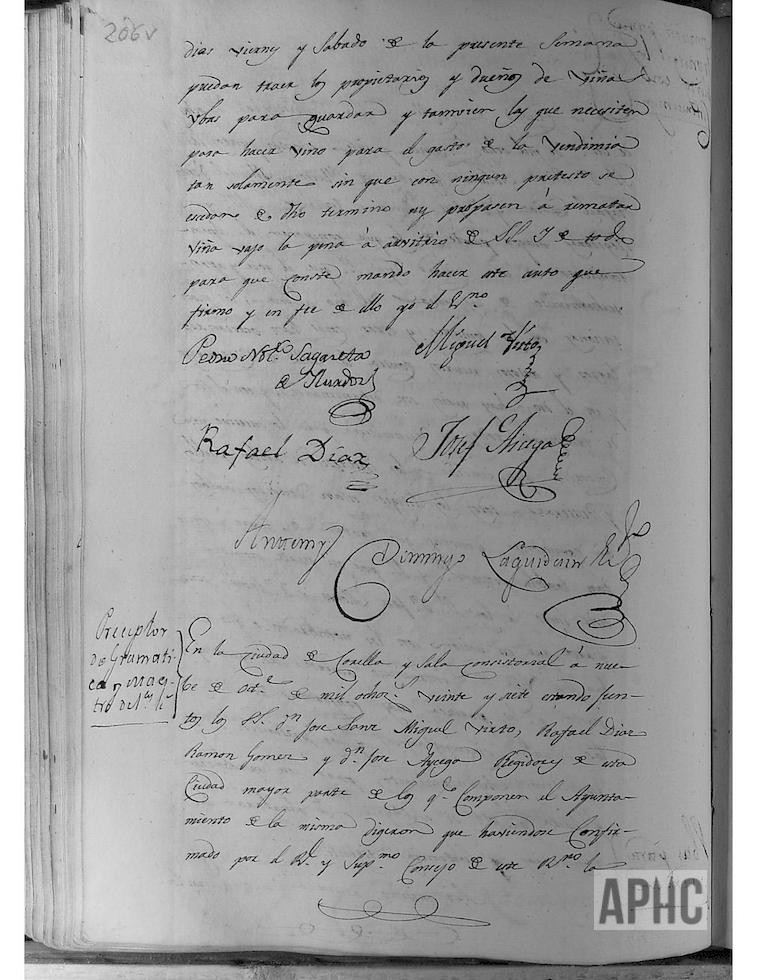 206v
dias viernẏ y Sabado de la presente Semana
puedan traer loˢ propietarioˢ y dueñoˢ de viñas
Ubas para guardar y tamvien laˢ que necesiten
para hacer vino para el gasto de la Vendimia
tan solamente sin que con ningun pretesto se
escedan de dho termino ny propasen á rematar
Viña vajo la pena á arvitrio de SS. Y de todo
para que conste mando hacer este auto que
firmo y en fee de ello yo el Essno
Pedro Sagaseta
de Ilurdoz
Miguel Virto
Rafael Diaz
Josef Aycega
Antemy
Domingo Laguidain
Preceptor
de Gramati-
ca y Maes-
tro de
En la Ciudad de Corella y Sala Consistorial á nue-
be de Octe. de mil ochocs. veinte y siete estando jun-
tos los SS. Dn Jose Sanz Miguel Virto, Rafael Diaz
Ramon Gomez y dn Jose Aycega Regidores de esta
Ciudad mayor parte de los qe Componen el Ayunta-
miento de la misma digeron que haviendose Confir-
mado por el Rl y Supmo Consejo de este Rno la
APHC